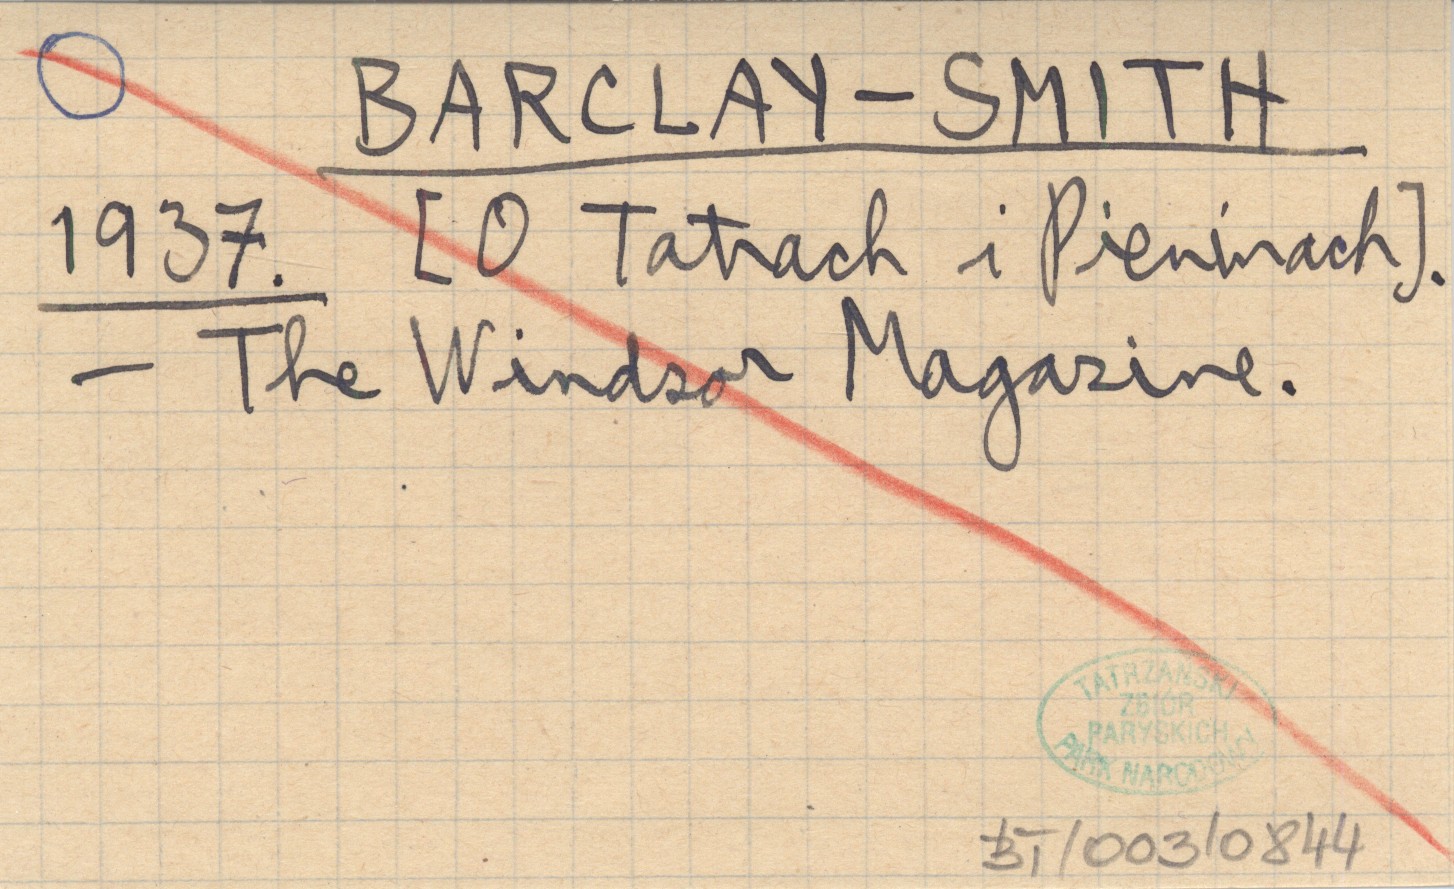 BARCLAY-SMITH
1937. [O Tatrach i Pieninach].
- The Windsor Magazine.
TATRZAŃSKI
ZBIÓR
PARYSKICH
PARK NARODOWY
BT/003/0844